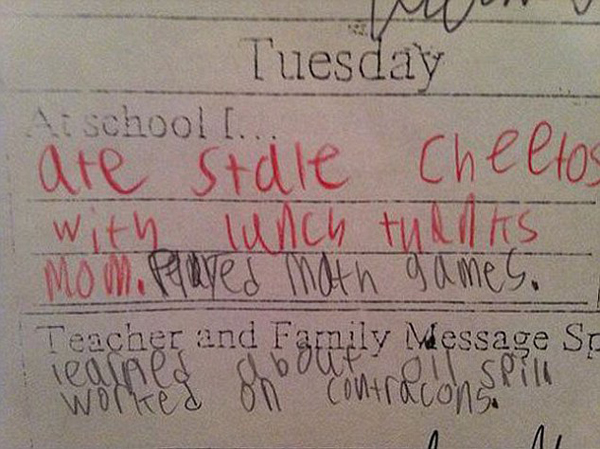 Tuesday
At school I...
ate stale Cheetos
with lunch thanks
mom. Played math games.
Teacher and Family Message Sp
learned about oil spill
worked on contracons.